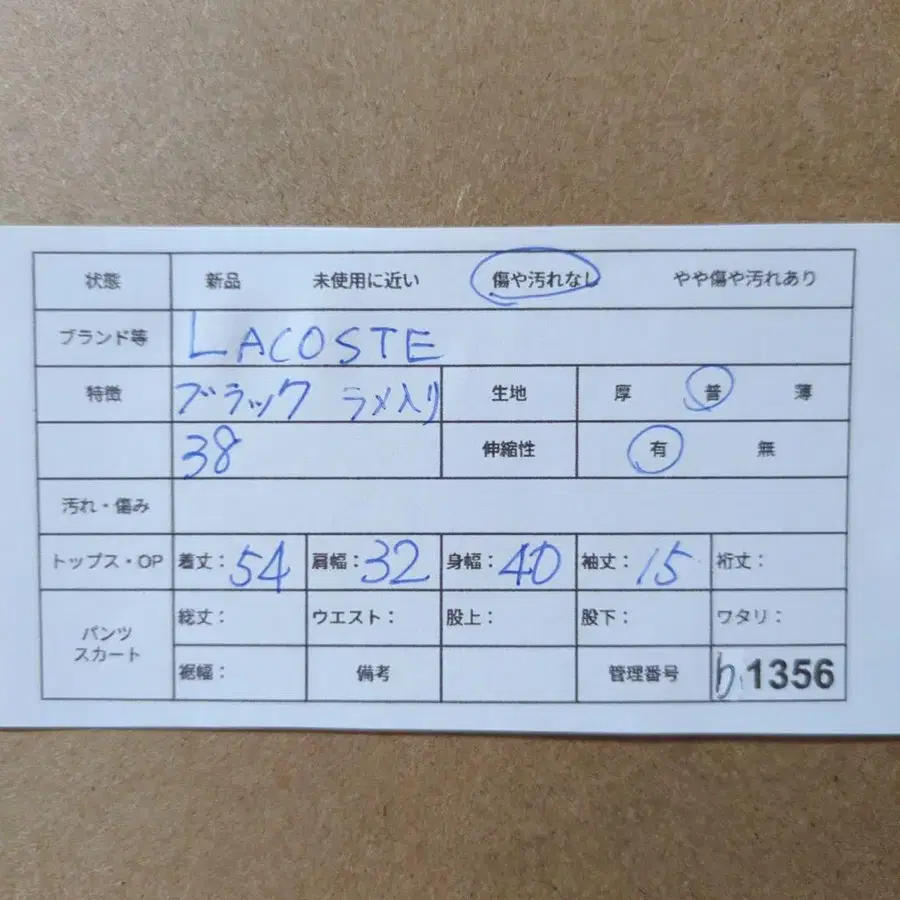 状態 新品 未使用に近い 傷や汚れなし やや傷や汚れあり
ブランド等 LACOSTE
特徴 ブラック ラメ入り 生地 厚 普 薄
38 伸縮性 有 無
汚れ・傷み
トップス・OP 着丈：54 肩幅：32 身幅：40 袖丈：15 裄丈：
パンツ
スカート
総丈： ウエスト： 股上： 股下： ワタリ：
裾幅： 備考 管理番号 b.1356